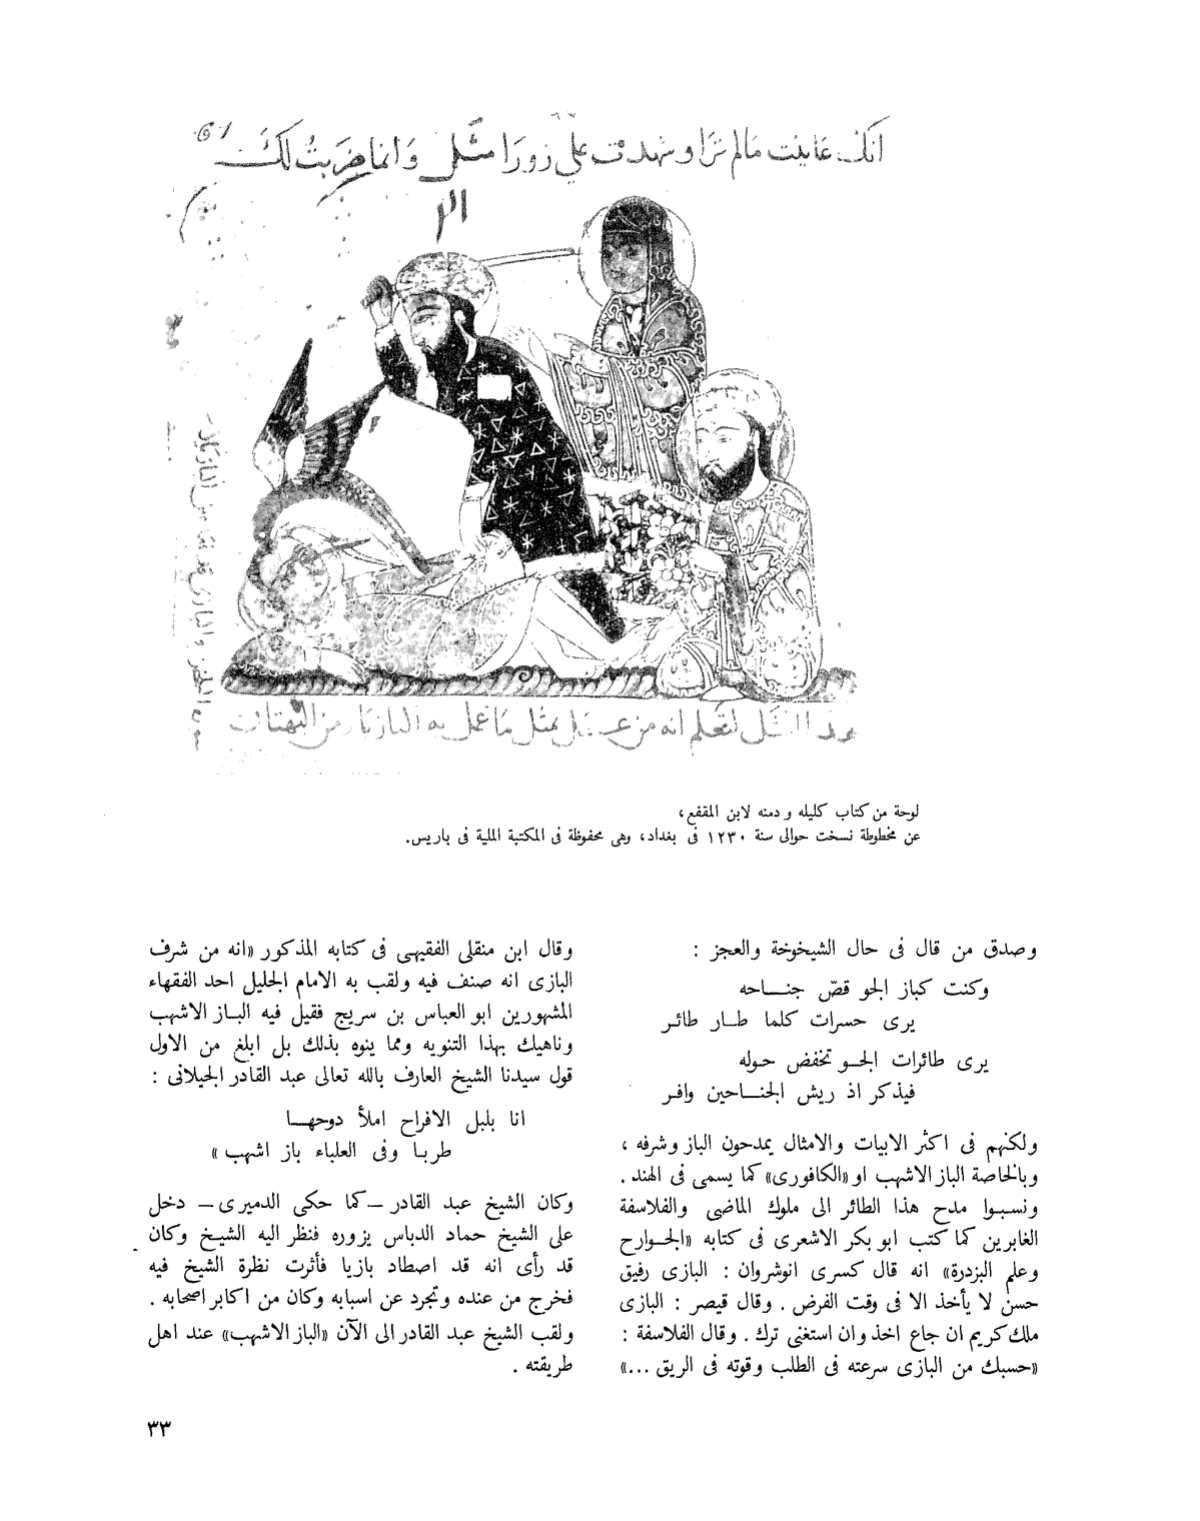 انك عاينت مالم ترا وشهدت علي زورا مثلي وانما ضربت لك
لوحة من كتاب كليله و دمنه لابن المقفع،
عن مخطوطة نسخت حوالى سنة ١٢٣٠ فى بغداد، وهى محفوظة فى المكتبة الملية فى باريس.
وصدق من قال فى حال الشيخوخة والعجز :
وكنت كباز الجو قصّ جنــاحه
يرى حسرات كلما طــار طائـر
يرى طائرات الجــو تخفض حـوله
فيذكر اذ ريش الجنــاحين وافـر
ولكنهم فى اكثر الابيات والامثال يمدحون الباز وشرفه ،
وبالخاصة الباز الاشهب او «الكافورى» كما يسمى فى الهند .
ونسـبـوا مدح هذا الطائر الى ملوك الماضى والفلاسفة
الغابرين كما كتب ابو بكر الاشعرى فى كتابه «الجـوارح
وعلم البزدرة» انه قال كسرى انوشروان : البازى رفيق
حسن لا يأخذ الا فى وقت الفرض . وقال قيصر : البازى
ملك كريم ان جاع اخذ وان استغنى ترك . وقال الفلاسفة :
«حسبك من البازى سرعته فى الطلب وقوته فى الريق ...»
وقال ابن منقلى الفقيهى فى كتابه المذكور «انه من شرف
البازى انه صنف فيه ولقب به الامام الجليل احد الفقهاء
المشهورين ابو العباس بن سريج فقيل فيه البـاز الاشهب
وناهيك بهذا التنويه ومما ينوه بذلك بل ابلغ من الاول
قول سيدنا الشيخ العارف بالله تعالى عبد القادر الجيلانى :
انا بلبل الافراح املأ دوحهــا
طربـا وفى العلياء باز اشهب »
وكان الشيخ عبد القادر – كما حكى الدميرى – دخل
على الشيخ حماد الدباس يزوره فنظر اليه الشيـخ وكان
قد رأى انه قد اصطاد بازيا فأثرت نظرة الشيخ فيه
فخرج من عنده وتجرد عن اسبابه وكان من اكابر اصحابه .
ولقب الشيخ عبد القادر الى الآن «الباز الاشهب» عند اهل
طريقته .
٣٣